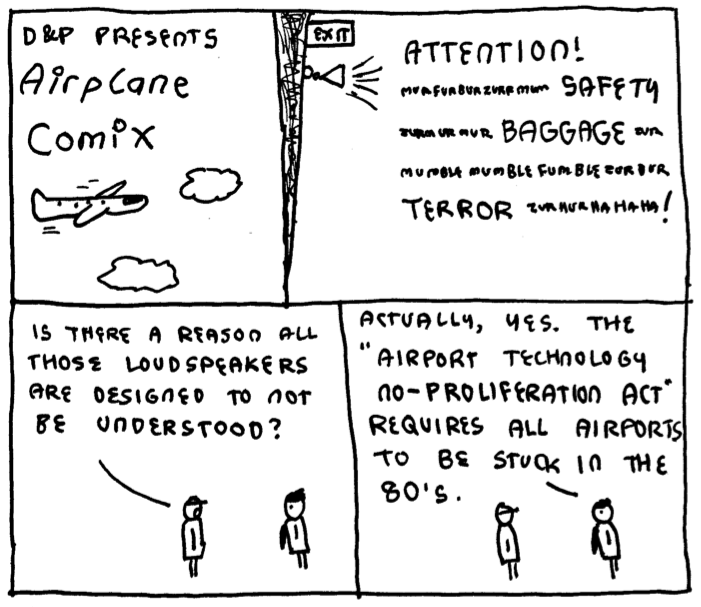 D&P PRESENTS
Airplane
Comix
EXIT
ATTENTION!
MURFURBURZURRMUM SAFETY
ZURMURMUR BAGGAGE ZUR
MUMBLE MUMBLE FUMBLE ZURBUR
TERROR ZURHURHAHAHA!
IS THERE A REASON ALL
THOSE LOUDSPEAKERS
ARE DESIGNED TO NOT
BE UNDERSTOOD?
ACTUALLY, YES. THE
"AIRPORT TECHNOLOGY
NO-PROLIFERATION ACT"
REQUIRES ALL AIRPORTS
TO BE STUCK IN THE
80'S.